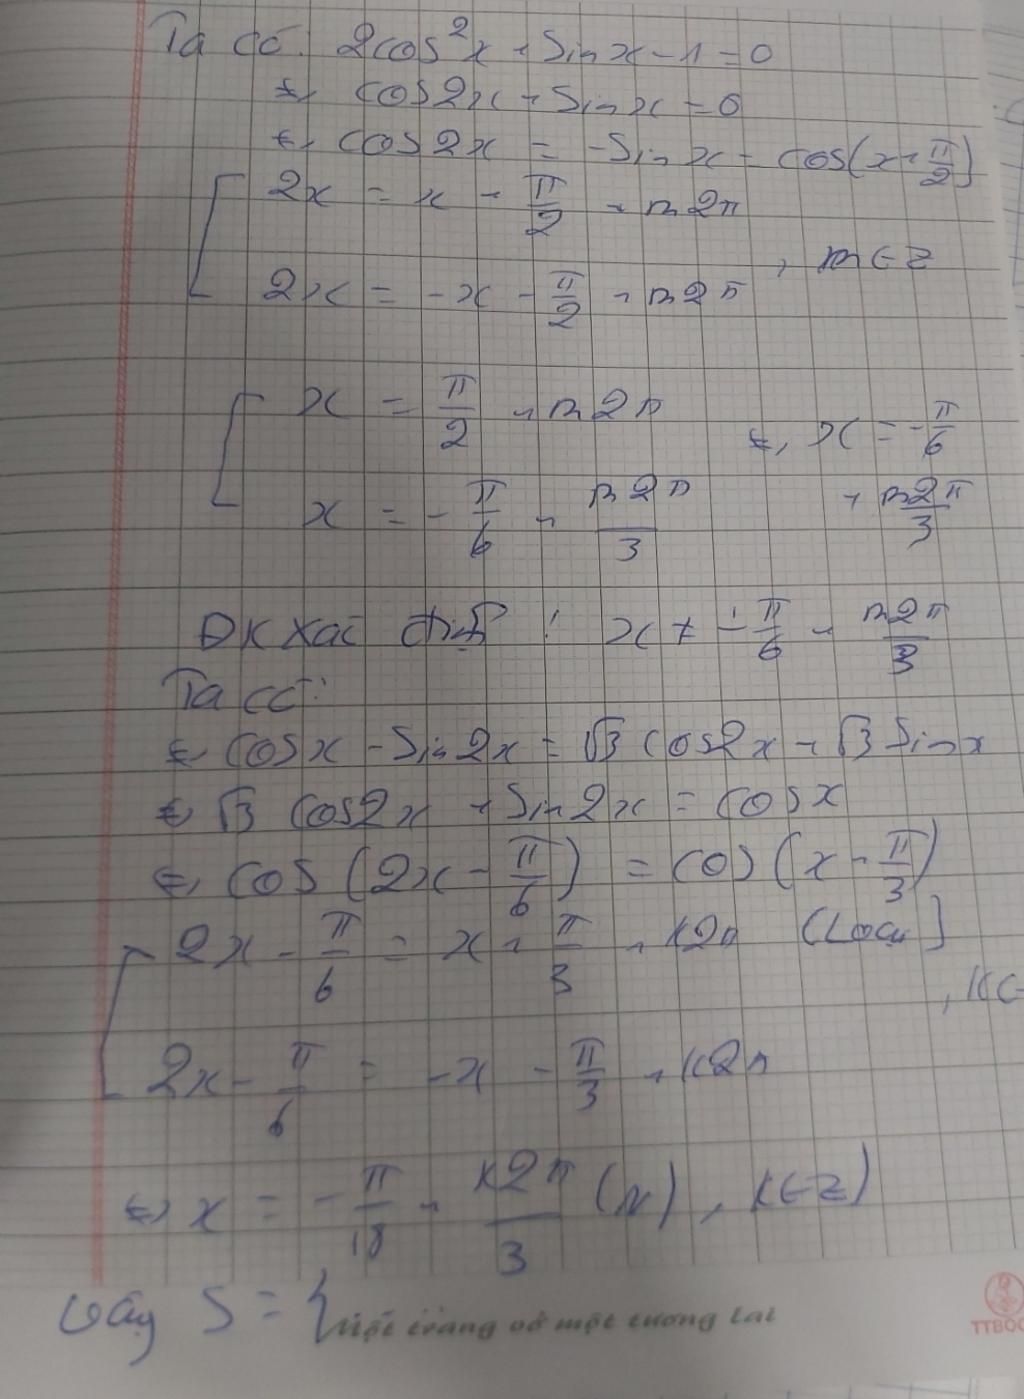 Ta có: 2cos²x + Sinx - 1 = 0
⇔ cos2x + Sinx = 0
⇔ cos2x = -Sinx = cos(x + π/2)
[ 2x = x + π/2 + m2π
, m ∈ Z
2x = -x - π/2 + m2π
[ x = π/2 + m2π
x = -π/6 + m2π/3
⇔ x = -π/6 + m2π/3
ĐK Xác định: x ≠ -π/6 + m2π/3
Ta có:
⇔ cosx - Sin2x = √3 cos2x + √3 Sinx
⇔ √3 cos2x + Sin2x = cosx
⇔ cos(2x - π/6) = cos(x + π/3)
[ 2x - π/6 = x + π/3 + k2π (Loại)
, k ∈
2x - π/6 = -x - π/3 + k2π
⇔ x = -π/18 + k2π/3 (N), k ∈ Z)
Vậy S = {
Một trang vở một tương lai